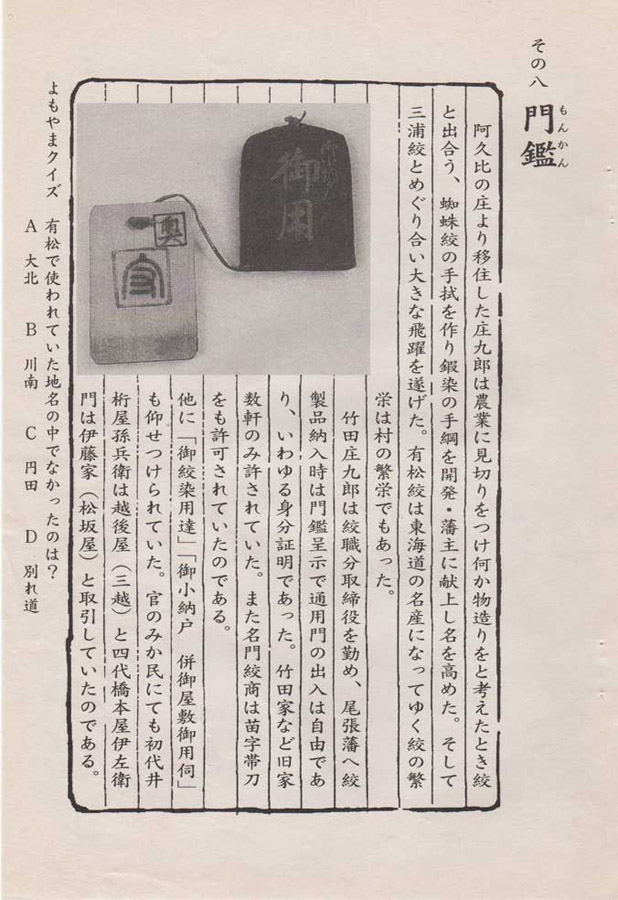 その八 門鑑
もんかん
阿久比の庄より移住した庄九郎は農業に見切りをつけ何か物造りをと考えたとき絞
と出合う、蜘蛛絞の手拭を作り鍜染の手綱を開発・藩主に献上し名を高めた。そして
三浦絞とめぐり合い大きな飛躍を遂げた。有松絞は東海道の名産になってゆく絞の繁
栄は村の繁栄でもあった。
竹田庄九郎は絞職分取締役を勤め、尾張藩へ絞
製品納入時は門鑑呈示で通用門の出入は自由であ
り、いわゆる身分証明であった。竹田家など旧家
数軒のみ許されていた。また名門絞商は苗字帯刀
をも許可されていたのである。
他に「御絞染用達」「御小納戸 併御屋敷御用伺」
も仰せつけられていた。官のみか民にても初代井
桁屋孫兵衛は越後屋（三越）と四代橋本屋伊左衛
門は伊藤家（松坂屋）と取引していたのである。
御用
奥
よもやまクイズ 有松で使われていた地名の中でなかったのは？
A 大北 B 川南 C 円田 D 別れ道